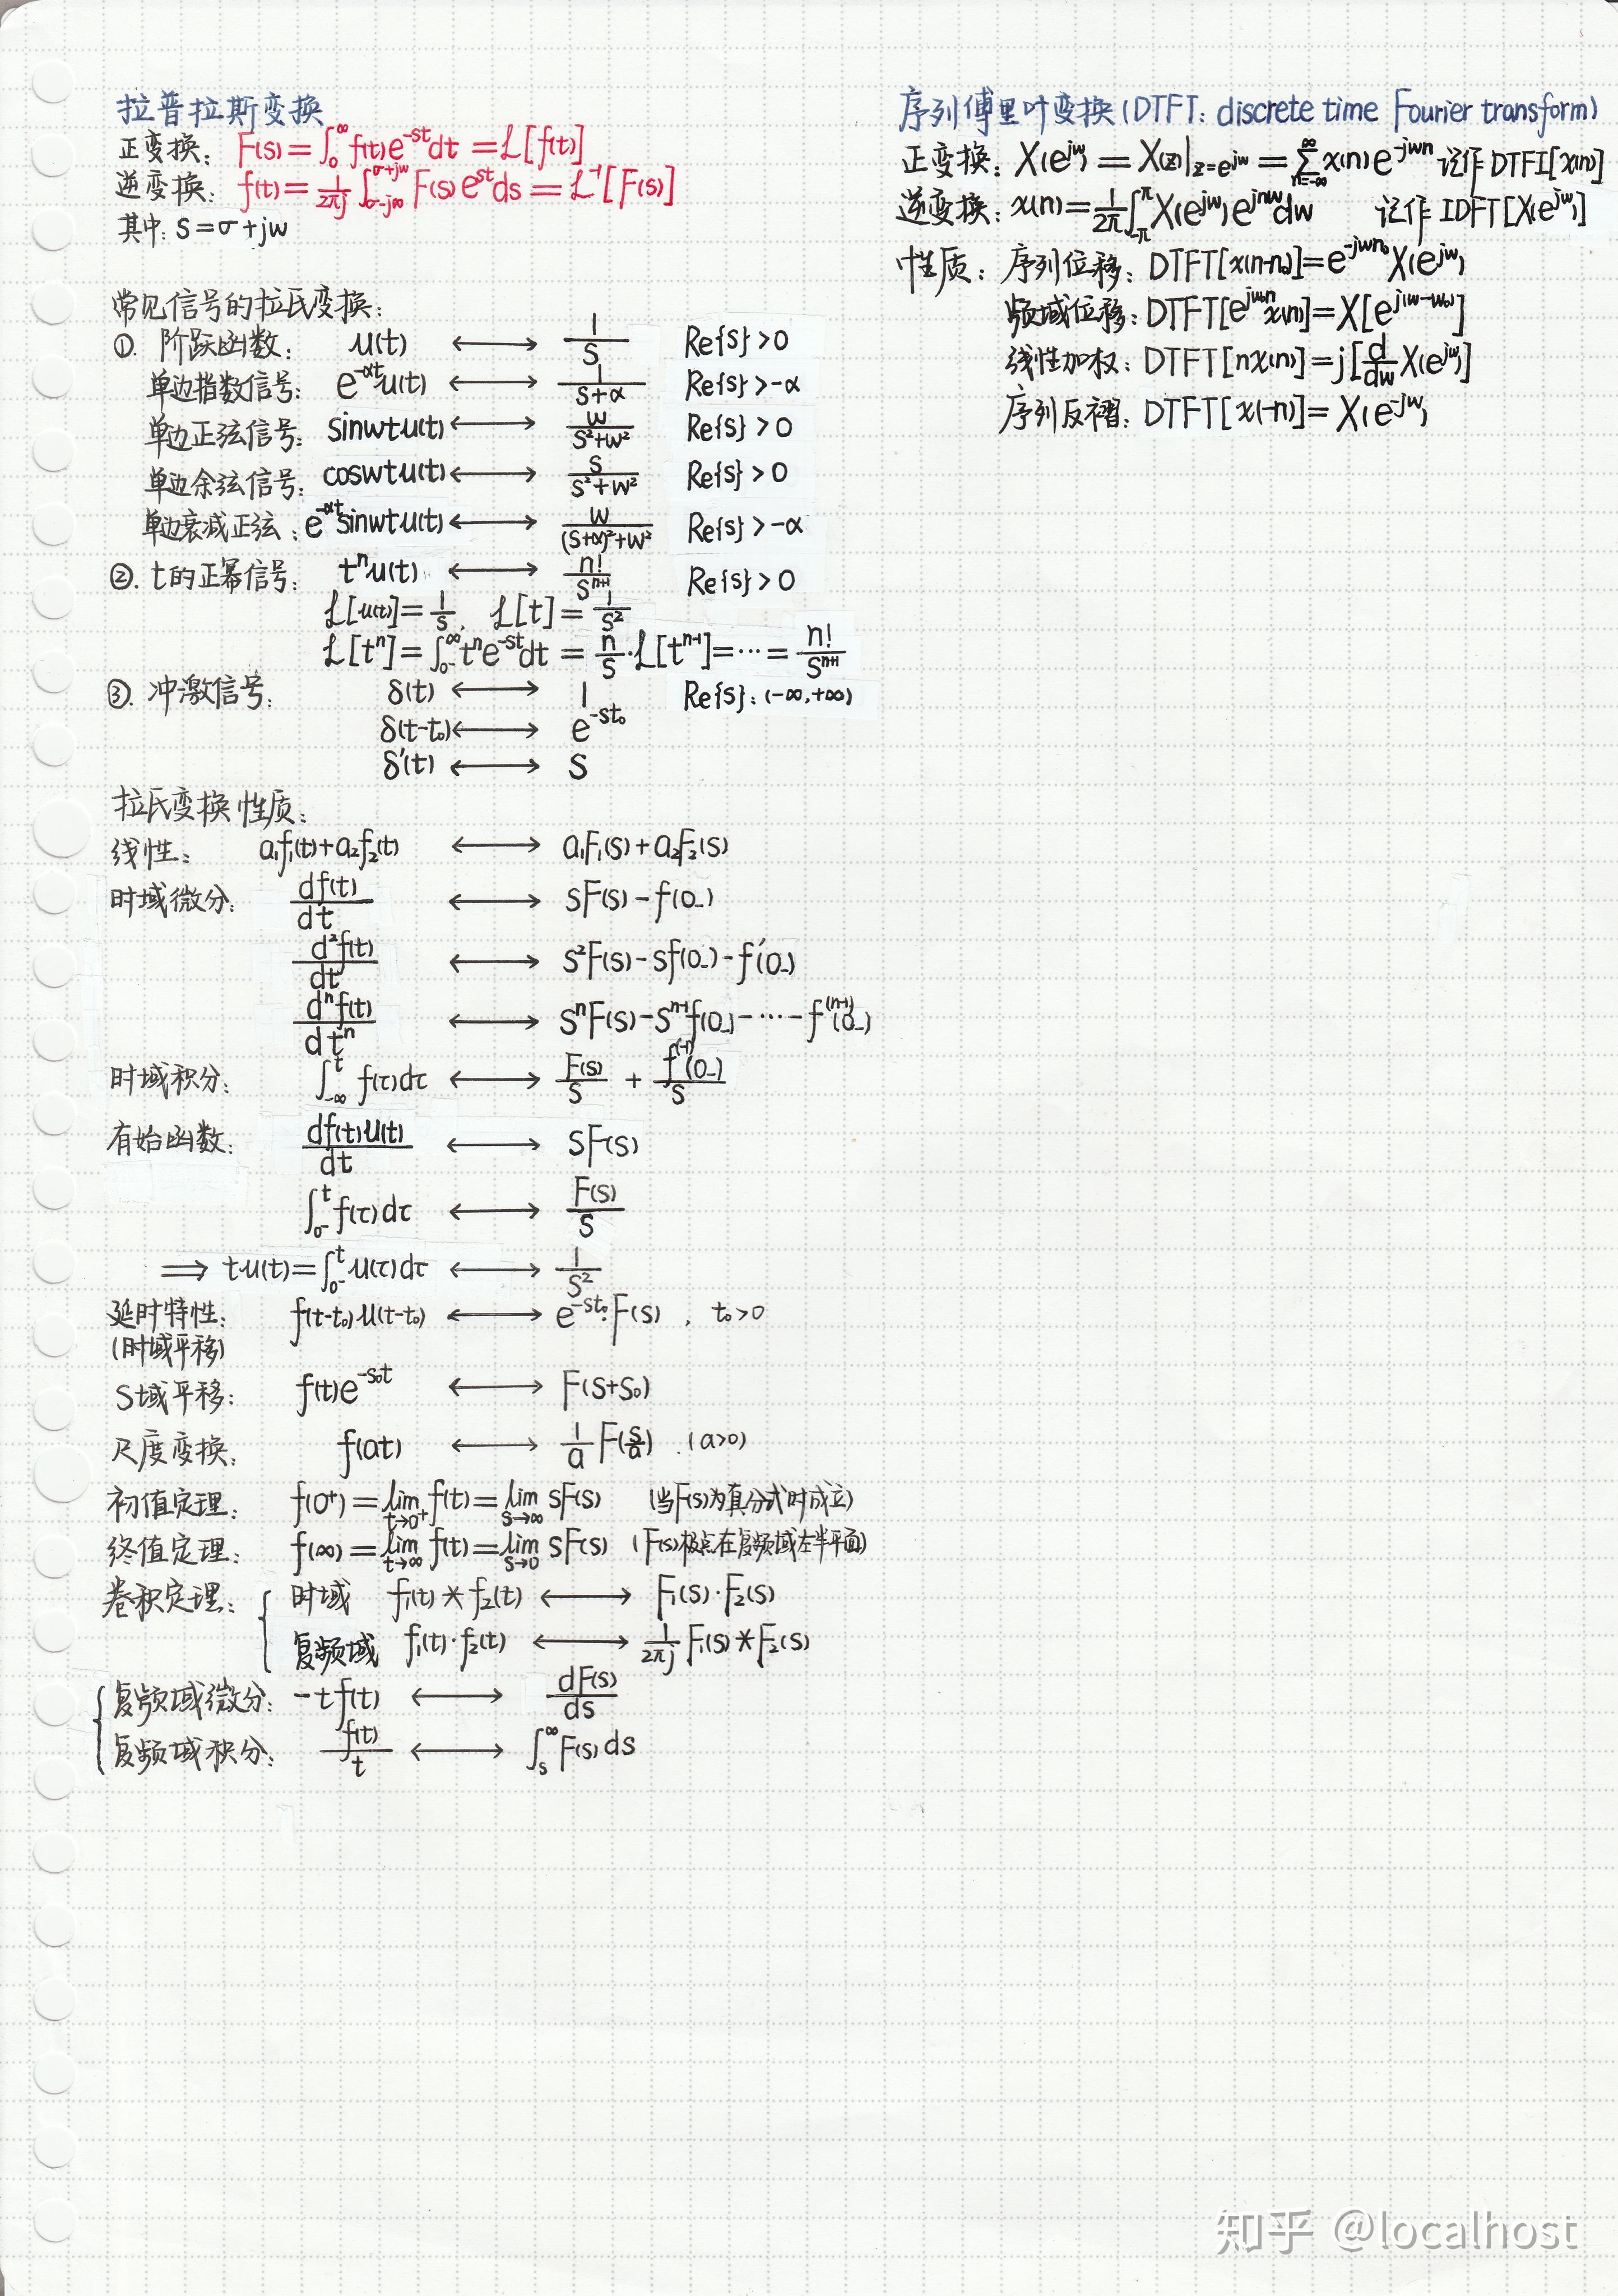 拉普拉斯变换
正变换: F(s)=∫₀^∞ f(t)e^{-st}dt=ℒ[f(t)]
逆变换: f(t)=\frac{1}{2πj}∫_{σ-j∞}^{σ+jw} F(s)e^{st}ds=ℒ^{-1}[F(s)]
其中: s=σ+jw
常见信号的拉氏变换:
①. 阶跃函数: u(t) ⟷ \frac{1}{s} Re{s}>0
单边指数信号: e^{-αt}u(t) ⟷ \frac{1}{s+α} Re{s}>-α
单边正弦信号: sinwtu(t) ⟷ \frac{w}{s²+w²} Re{s}>0
单边余弦信号: coswtu(t) ⟷ \frac{s}{s²+w²} Re{s}>0
单边衰减正弦: e^{-αt}sinwtu(t) ⟷ \frac{w}{(s+α)²+w²} Re{s}>-α
②. t的正幂信号: tⁿu(t) ⟷ \frac{n!}{s^{n+1}} Re{s}>0
ℒ[u(t)]=\frac{1}{s}, ℒ[t]=\frac{1}{s²}
ℒ[tⁿ]=∫_{0-}^∞ tⁿe^{-st}dt=\frac{n}{s}·ℒ[t^{n-1}]=···=\frac{n!}{s^{n+1}}
③. 冲激信号: δ(t) ⟷ 1 Re{s}: (-∞,+∞)
δ(t-t₀) ⟷ e^{-st₀}
δ′(t) ⟷ s
拉氏变换性质:
线性: a₁f₁(t)+a₂f₂(t) ⟷ a₁F₁(s)+a₂F₂(s)
时域微分: \frac{df(t)}{dt} ⟷ sF(s)-f(0₋)
\frac{d²f(t)}{dt} ⟷ s²F(s)-sf(0₋)-f′(0₋)
\frac{dⁿf(t)}{dtⁿ} ⟷ sⁿF(s)-s^{n-1}f(0₋)-···-f^{(n-1)}(0₋)
时域积分: ∫_{-∞}^t f(τ)dτ ⟷ \frac{F(s)}{s} + \frac{f^{(-1)}(0₋)}{s}
有始函数: \frac{df(t)u(t)}{dt} ⟷ sF(s)
∫_{0-}^t f(τ)dτ ⟷ \frac{F(s)}{s}
⟹ tu(t)=∫_{0-}^t u(τ)dτ ⟷ \frac{1}{s²}
延时特性: f(t-t₀)u(t-t₀) ⟷ e^{-st₀}·F(s) , t₀>0
(时域平移)
S域平移: f(t)e^{-s₀t} ⟷ F(s+s₀)
尺度变换: f(at) ⟷ \frac{1}{a}F(\frac{s}{a}) . (a>0)
初值定理: f(0⁺)=lim_{t→0⁺}f(t)=lim_{s→∞}sF(s) (当F(s)为真分式时成立)
终值定理: f(∞)=lim_{t→∞}f(t)=lim_{s→0}sF(s) (F(s)极点在复频域左半平面)
卷积定理: { 时域 f₁(t)*f₂(t) ⟷ F₁(s)·F₂(s)
复频域 f₁(t)·f₂(t) ⟷ \frac{1}{2πj}F₁(s)*F₂(s)
{ 复频域微分: -tf(t) ⟷ \frac{dF(s)}{ds}
复频域积分: \frac{f(t)}{t} ⟷ ∫_s^∞ F(s)ds
序列傅里叶变换(DTFT: discrete time Fourier transform)
正变换: X(e^{jw})=X(z)|_{z=e^{jw}}=∑_{n=-∞}^∞ x(n)e^{-jwn} 记作DTFT[x(n)]
逆变换: x(n)=\frac{1}{2π}∫_{-π}^π X(e^{jw})e^{jnw}dw 记作 IDFT[X(e^{jw})]
性质: 序列位移: DTFT[x(n-n₀)]=e^{-jwn₀}X(e^{jw})
频域位移: DTFT[e^{jw₀n}x(n)]=X[e^{j(w-w₀)}]
线性加权: DTFT[nx(n)]=j[\frac{d}{dw}X(e^{jw})]
序列反褶: DTFT[x(-n)]=X(e^{-jw})
知乎 @localhost